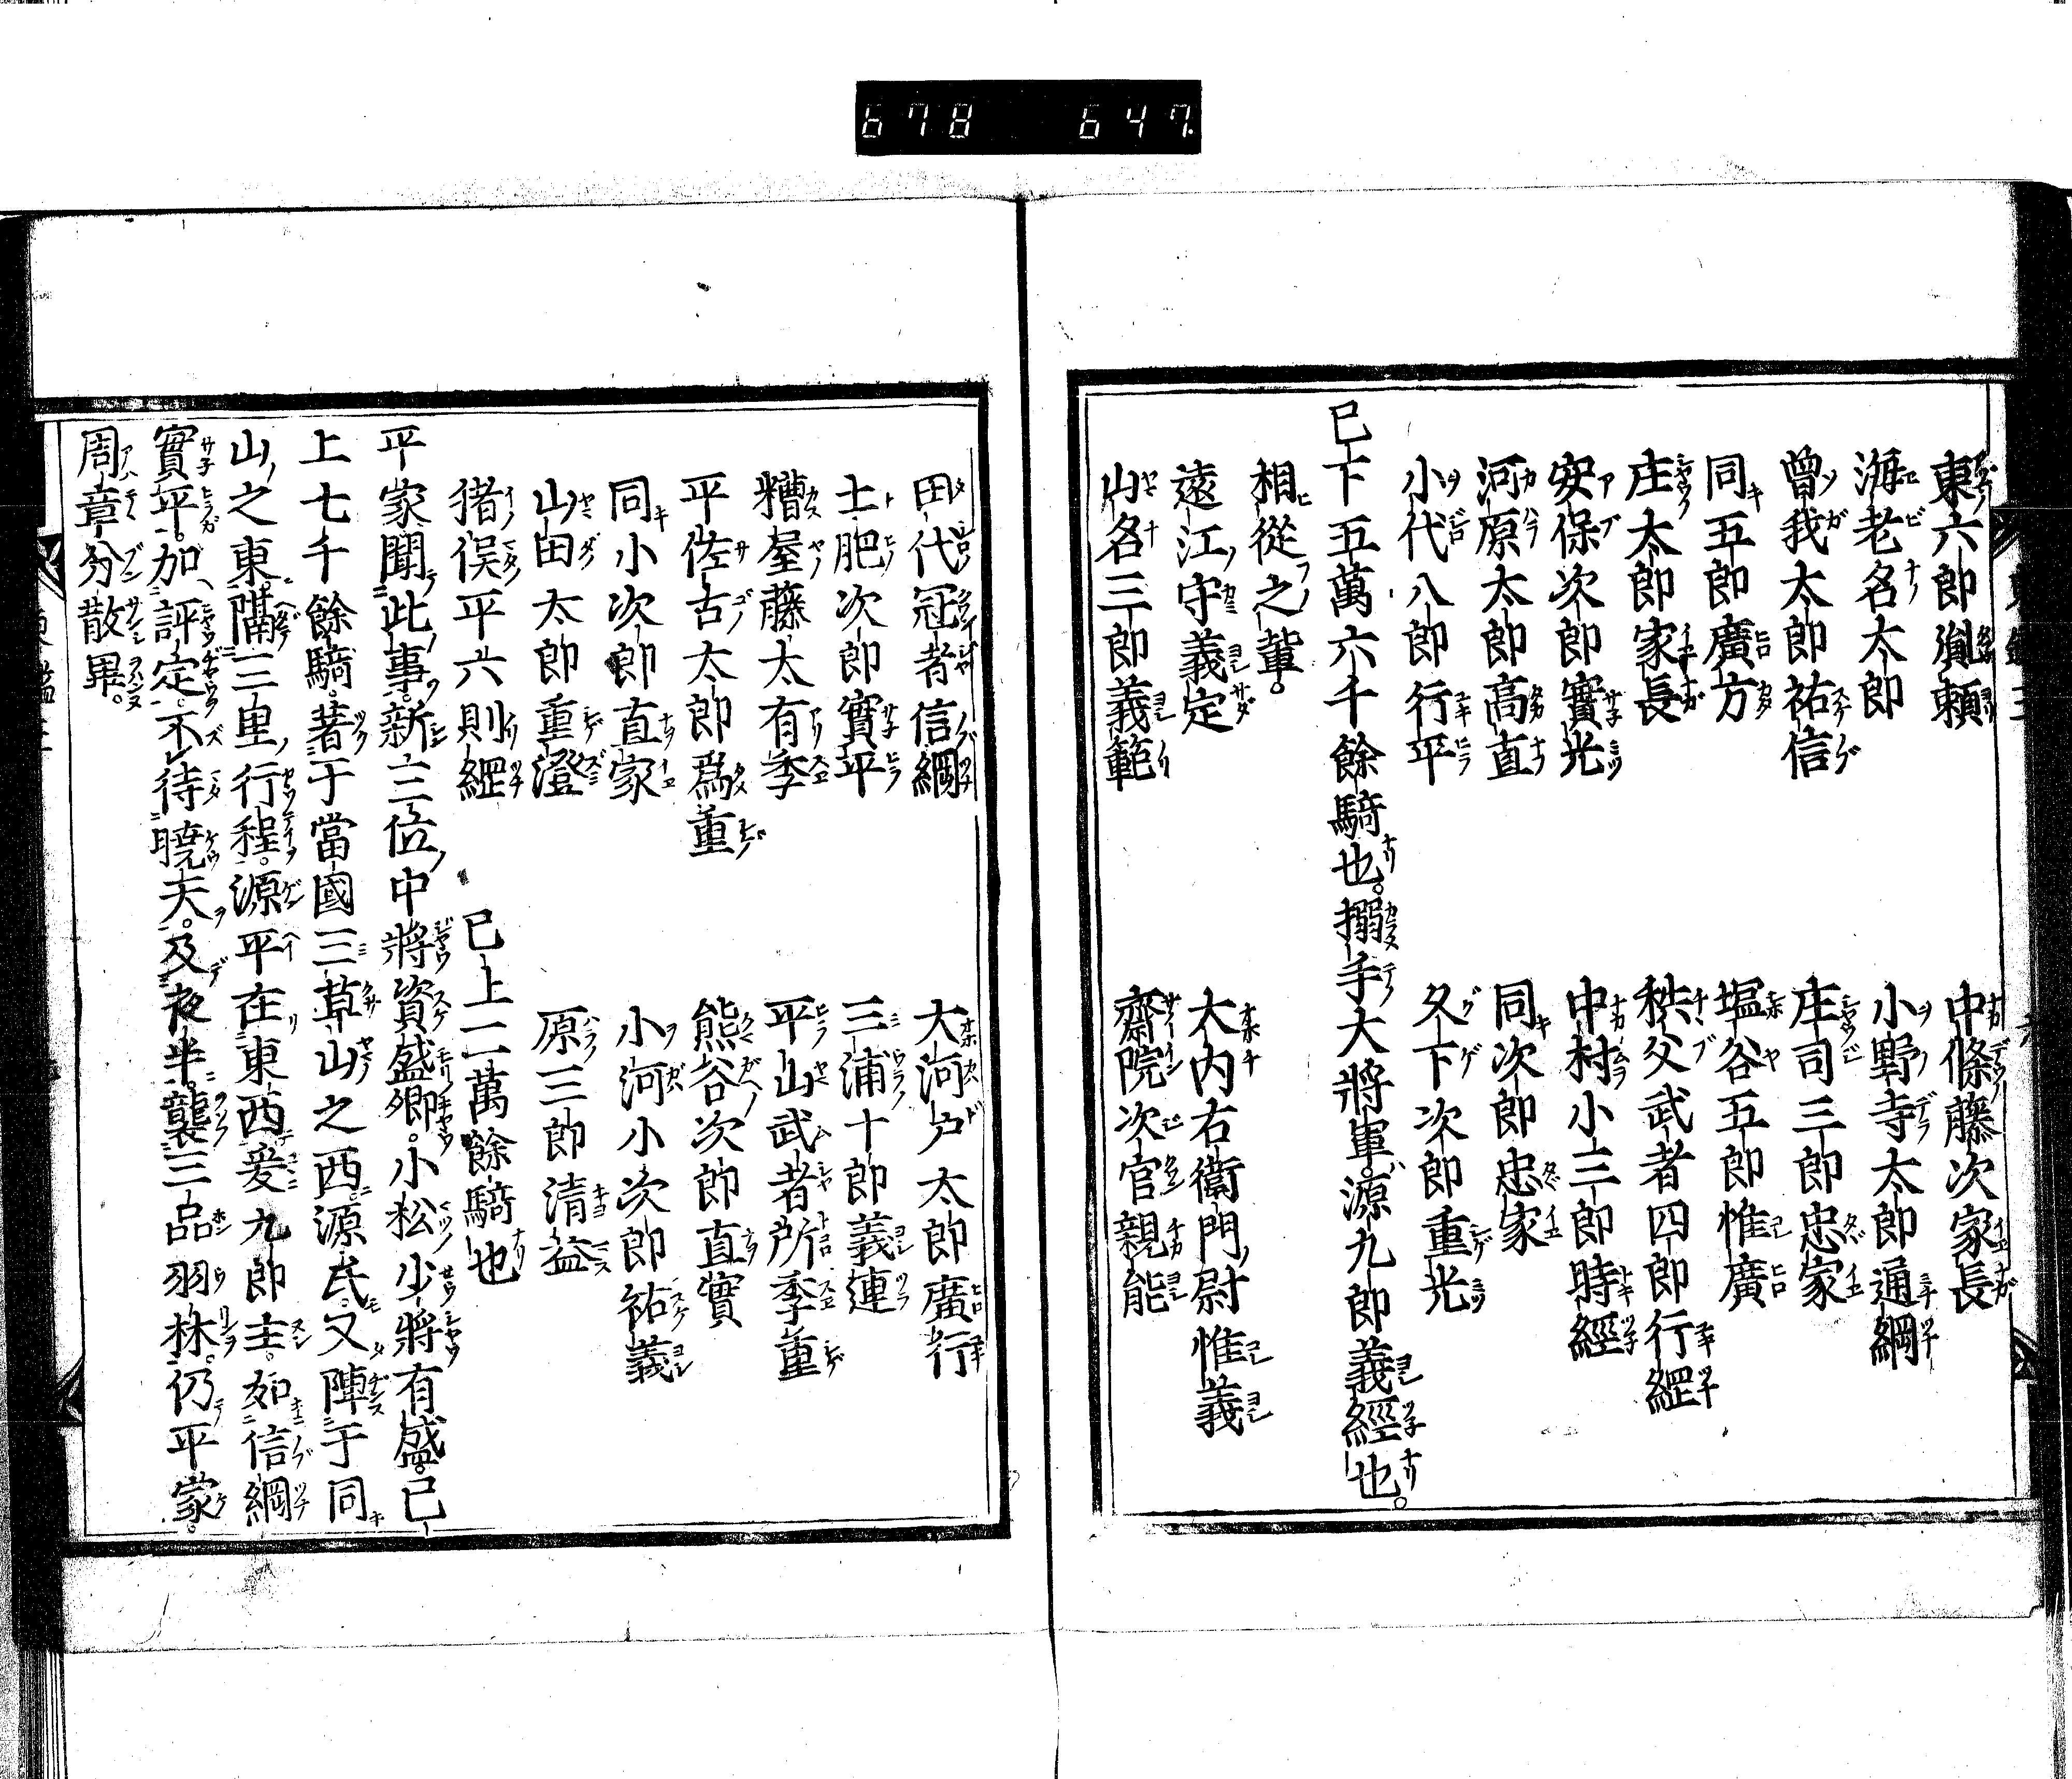 678 647.
東六郎胤頼 中條藤次家長
海老名太郎 小野寺太郎通綱
曽我太郎祐信 庄司三郎忠家
同五郎廣方 塩谷五郎惟廣
庄太郎家長 秩父武者四郎行綱
安保次郎實光 中村小三郎時經
河原太郎高直 同次郎忠家
小代八郎行平 久下次郎重光
已下五萬六千餘騎也。搦手大將軍源九郎義經也。
相從之輩。
遠江守義定 大内右衞門尉惟義
山名三郎義範 齋院次官親能
田代冠者信綱 大河戸太郎廣行
土肥次郎實平 三浦十郎義連
糟屋藤太有季 平山武者所季重
平佐古太郎為重 熊谷次郎直實
同小次郎直家 小河小次郎祐義
山田太郎重澄 原三郎清益
猪俣平六則綱
已上二萬餘騎也
平家聞此事。新三位中將資盛卿。小松少將有盛。已
上七千餘騎。著于當國三草山之西。源氏又陣于同
山之東。隔三里行程。源平在東西。爰九郎主。如信綱
實平。加評定。不待暁天。及夜半。襲三品羽林。仍平家。
周章分散畢。